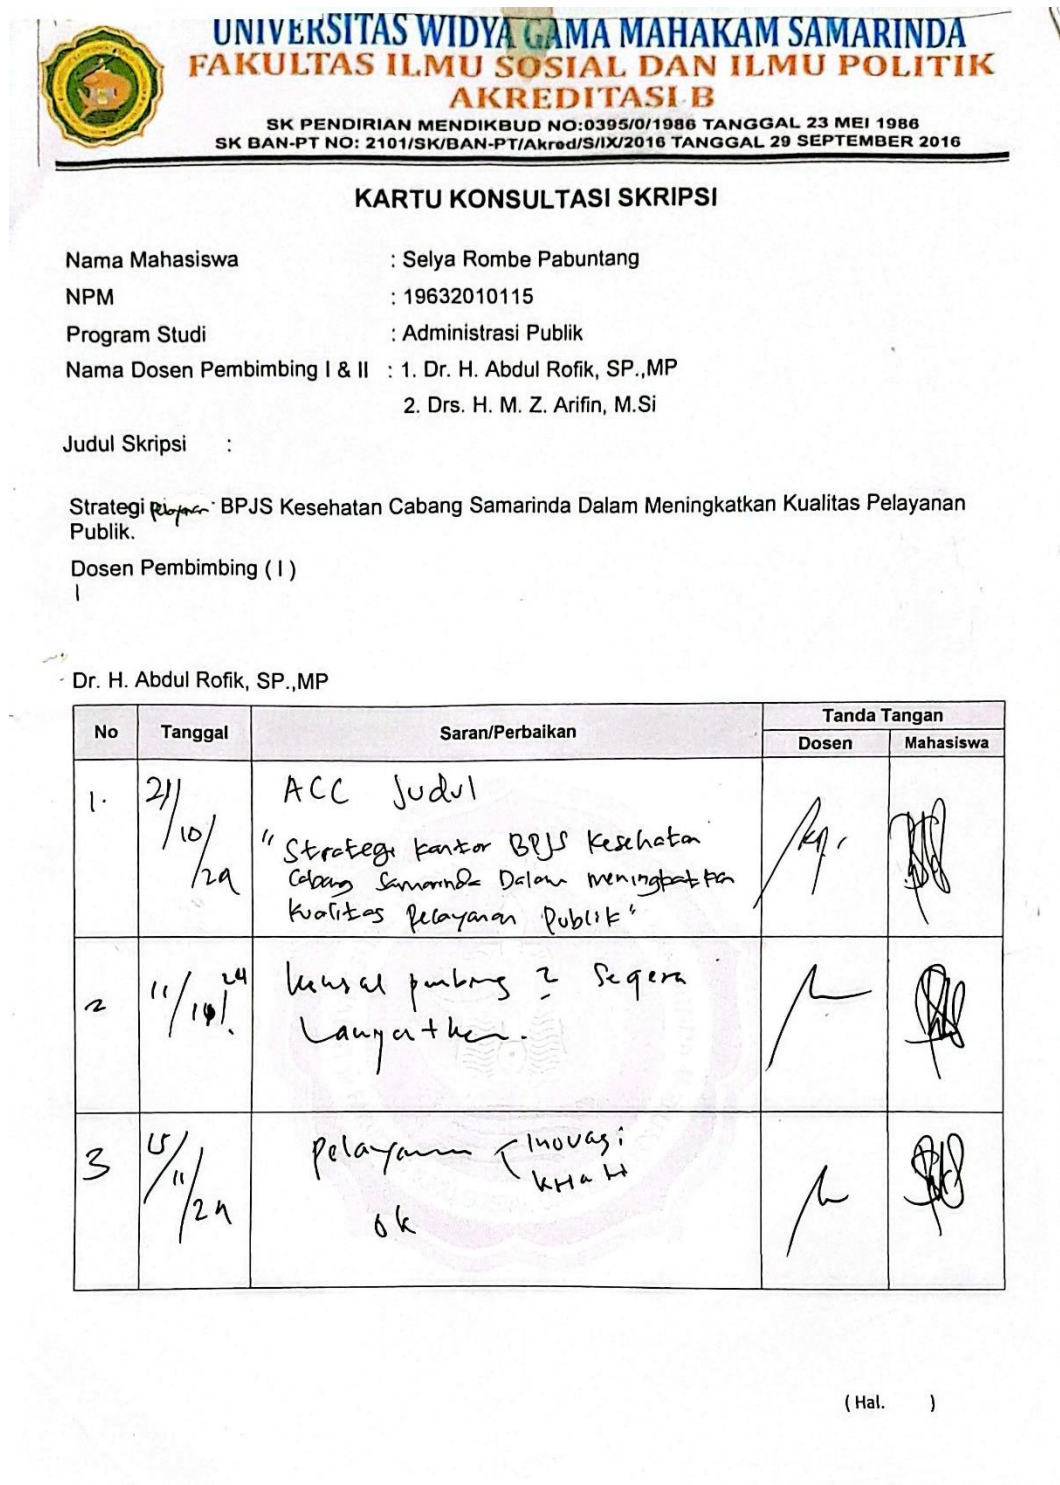 UNIVERSITAS WIDYA GAMA MAHAKAM SAMARINDA
FAKULTAS ILMU SOSIAL DAN ILMU POLITIK
AKREDITASI B
SK PENDIRIAN MENDIKBUD NO:0395/0/1986 TANGGAL 23 MEI 1986
SK BAN-PT NO: 2101/SK/BAN-PT/Akred/S/IX/2016 TANGGAL 29 SEPTEMBER 2016
KARTU KONSULTASI SKRIPSI
Nama Mahasiswa : Selya Rombe Pabuntang
NPM : 19632010115
Program Studi : Administrasi Publik
Nama Dosen Pembimbing I & II : 1. Dr. H. Abdul Rofik, SP.,MP
2. Drs. H. M. Z. Arifin, M.Si
Judul Skripsi :
Strategi BPJS Kesehatan Cabang Samarinda Dalam Meningkatkan Kualitas Pelayanan
Publik.
Dosen Pembimbing ( I )
Dr. H. Abdul Rofik, SP.,MP
No Tanggal Saran/Perbaikan Tanda Tangan
Dosen Mahasiswa
1. 21/10/24 ACC Judul
"Strategi kantor BPJS Kesehatan
Cabang Samarinda Dalam meningkatkan
Kualitas Pelayanan Publik"
2 11/ 24 2 Segera
Lanjutkan.
3 15/11/24 Pelayanan Inovasi
ok
( Hal. )